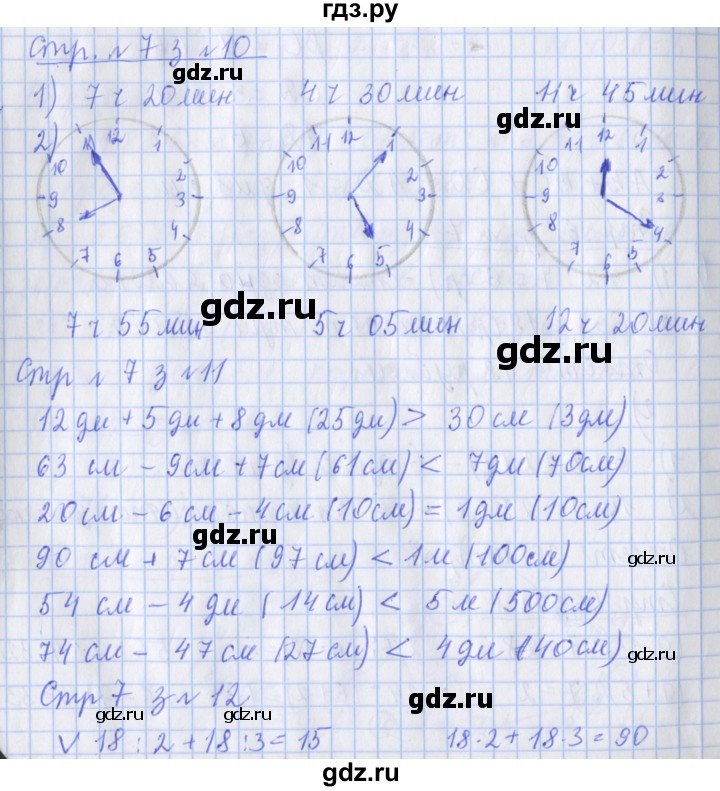 гдз.ру
Стр. № 7 з № 10
gdz.ru
1) 7 ч 20 мин 4 ч 30 мин 11 ч 45 мин
gdz.ru gdz.ru
2)
11 12 1 2 3 4 5 6 7 8 9 10
11 12 1 2 3 4 5 6 7 8 9 10
12 1 2 3 4 5 6
7 ч 55 мин 5 ч 05 мин 12 ч 20 мин
gdz.ru gdz.ru
Стр № 7 з № 11
12 дм + 5 дм + 8 дм (25 дм) > 30 см (3 дм)
63 см - 9 см + 7 см (61 см) < 7 дм (70 см)
20 см - 6 см - 4 см (10 см) = 1 дм (10 см)
gdz.ru gdz.ru
90 см + 7 см (97 см) < 1 м (100 см)
gdz.ru
54 см - 4 дм (14 см) < 5 м (500 см)
74 см - 47 см (27 см) < 4 дм (40 см)
gdz.ru
Стр 7 з № 12
gdz.ru gdz.ru gdz.ru
V 18 : 2 + 18 : 3 = 15 18 · 2 + 18 · 3 = 90
gdz.ru